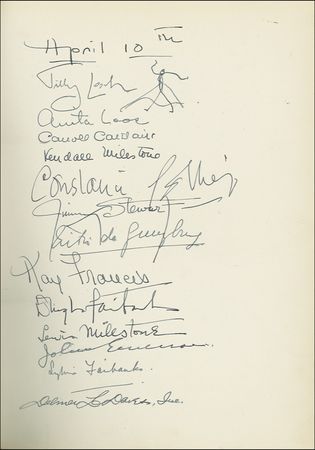 April 10TH
Tilly Losch
Anita Loos
Carroll Carstairs
Kendall Milestone
Constance
Jimmy Stewart
de Gunzburg
Kay Francis
Douglas Fairbanks
Lewis Milestone
John Emerson.
Sylvia Fairbanks.
Delmer L Daves, Inc.